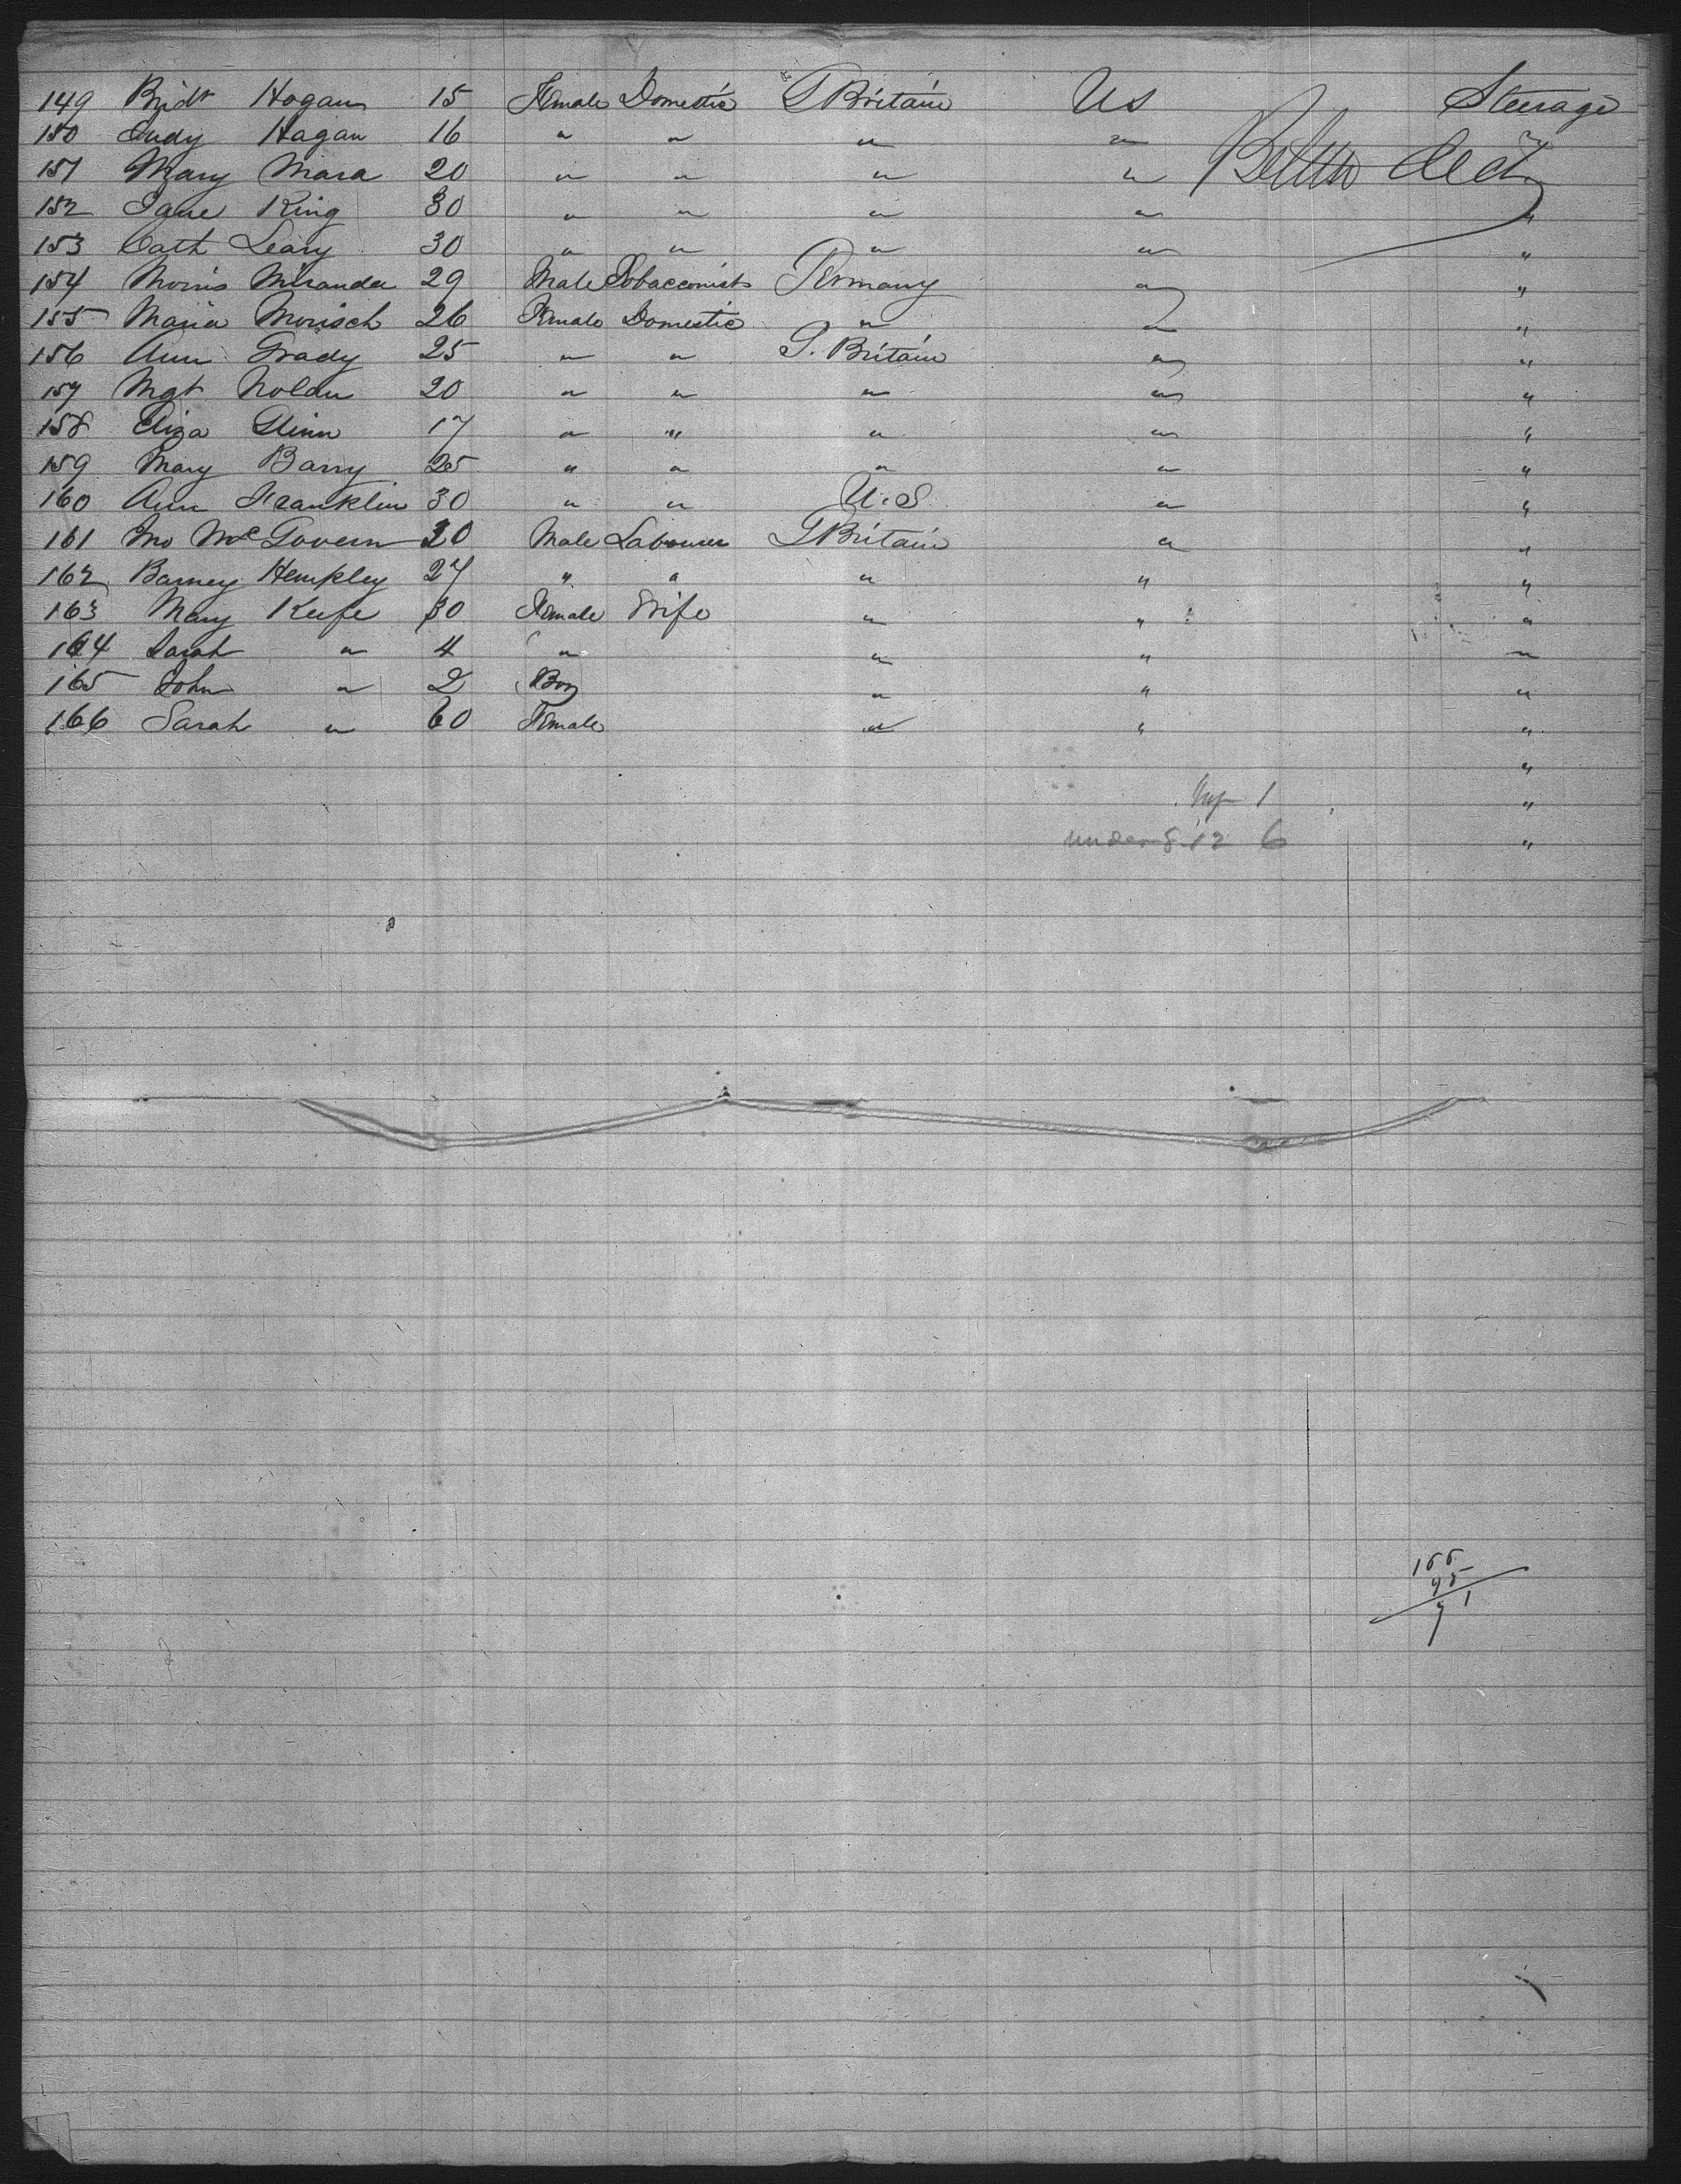 149 Bridt Hogan 15 Female Domestic G Britain US Steerage
150 Judy Hagan 16 " " " " "
151 Mary Mara 20 " " " "
152 Jane King 30 " " " " "
153 Cath Leary 30 " " " " "
154 Morris Miranda 29 Male Tobacconists Germany " "
155 Maria Morisch 26 Female Domestic " " "
156 Ann Grady 25 " " G. Britain " "
157 Mgt Nolan 20 " " " " "
158 Eliza Glinn 17 " " " " "
159 Mary Barry 25 " " " " "
160 Ann Franklin 30 " " U.S. " "
161 Jno McGovern 20 Male Labourer G Britain " "
162 Barney Hempley 27 " " " " "
163 Mary Keefe 30 Female Wife " " "
164 Sarah " 4 " " " "
165 John " 2 Boy " " "
166 Sarah " 60 Female " " "
"
1 "
under 8. 12 6 "
166
95
71